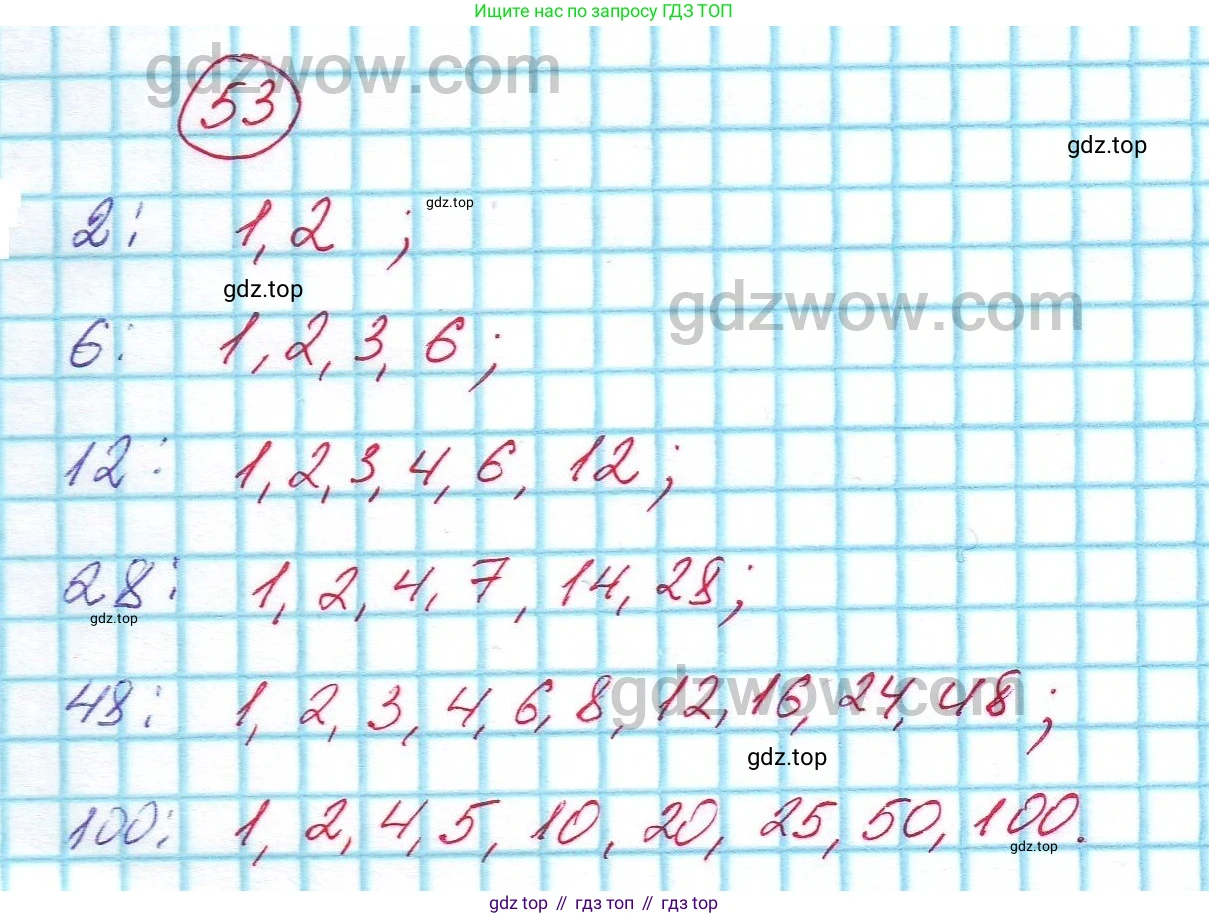 Ищите нас по запросу ГДЗ ТОП
gdzwow.com
53
gdz.top
2: 1, 2 ;
gdz.top
gdz.top
gdzwow.com
6: 1, 2, 3, 6;
12: 1, 2, 3, 4, 6, 12;
28: 1, 2, 4, 7, 14, 28;
gdz.top
gdzwow.com
48: 1, 2, 3, 4, 6, 8, 12, 16, 24, 48;
gdz.top
100: 1, 2, 4, 5, 10, 20, 25, 50, 100.
gdz.top
gdz top // гдз топ // gdz top